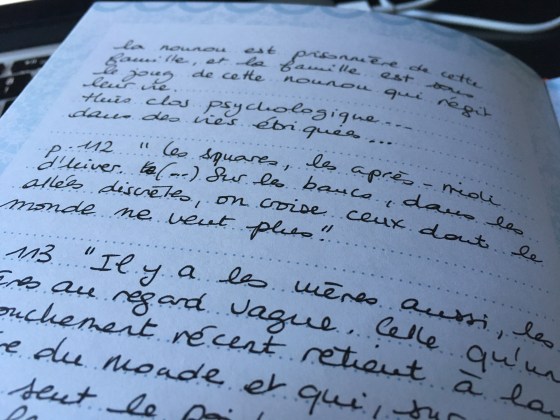 la nounou est prisonnière de cette
famille, et la famille est sous
le joug de cette nounou qui régit
leur vie.
Huis clos psychologique...
dans des vies étriquées...
p. 112 " Les squares, les après-midi
d'hiver. (...) Sur les bancs, dans les
allées discrètes, on croise ceux dont le
monde ne veut plus".
113 "Il y a les mères aussi, les
ères au regard vague. Celle qu'un
ouchement récent retient à la
e du monde et qui, sur
sent le poi